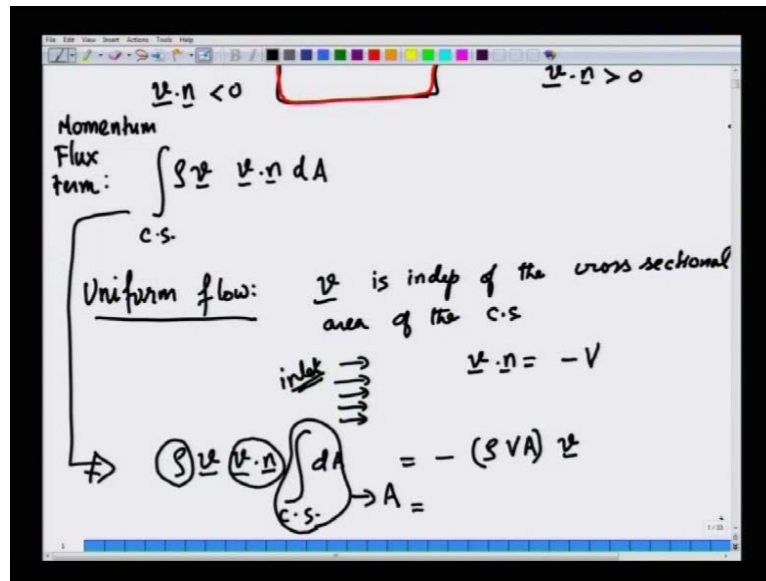 File Edit View Insert Actions Tools Help
v·n < 0 v·n > 0
Momentum
Flux
term: ∫ ρ v v·n dA
C.S.
Uniform flow: v is indep of the cross sectional
area of the C.S
inlet v·n = -V
⇒ ρ v v·n ∫ dA = - (ρ V A) v
C.S. → A =
1/33
1